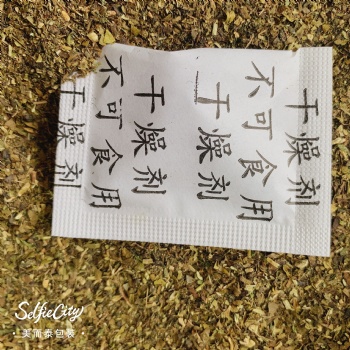 干燥剂
不可食用
干燥剂
干燥剂
不可食用
干燥剂
SelfieCity
·美而泰包装·